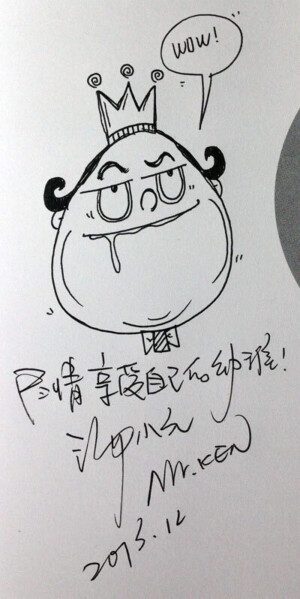 WOW!
尽情享受自己的幼稚!
Mr.KEN
2013.12